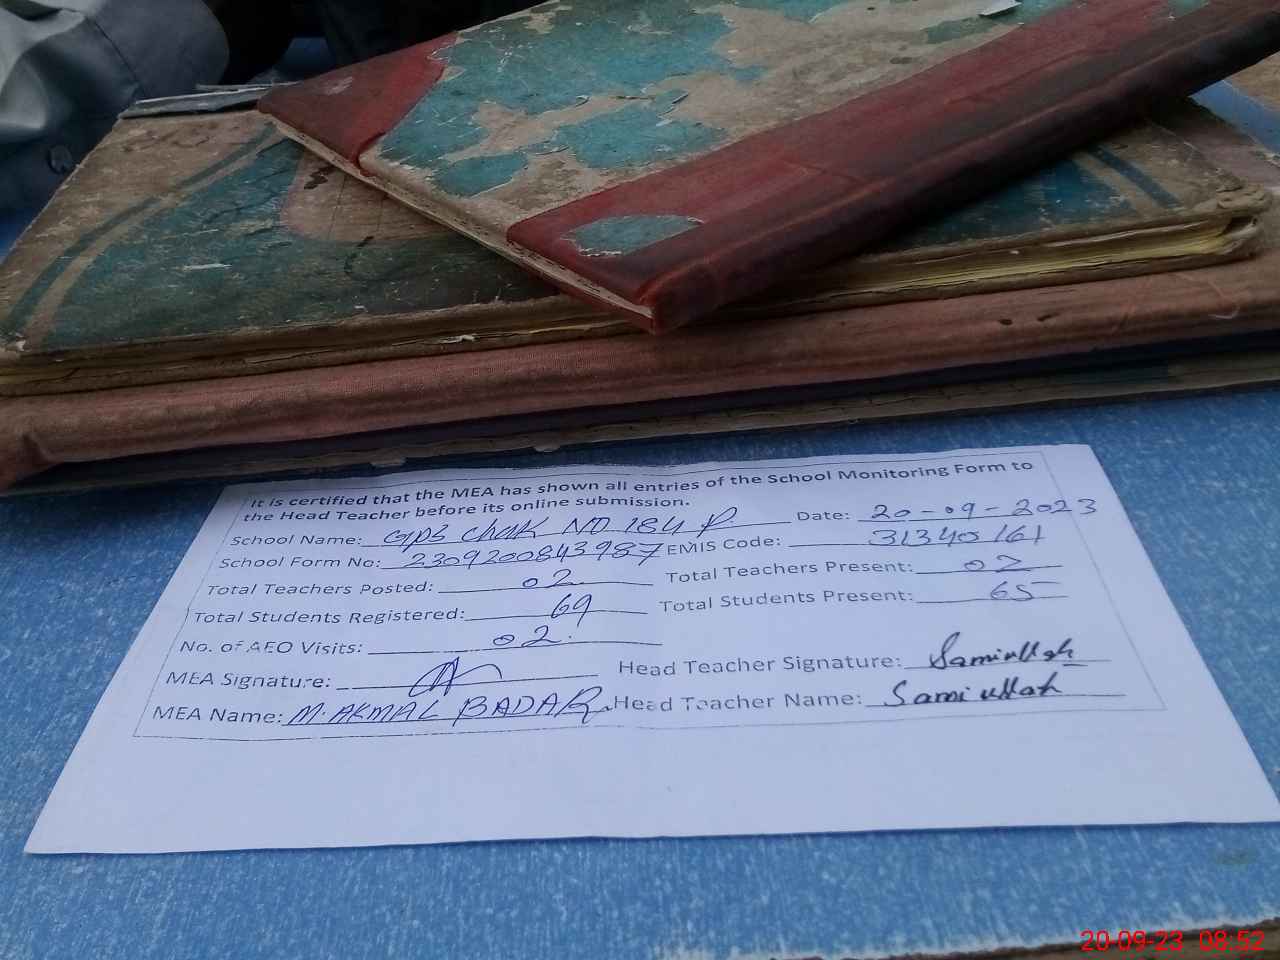 It is certified that the MEA has shown all entries of the School Monitoring Form to
the Head Teacher before its online submission.
School Name: GPS Chak NO 184 P. Date: 20-09-2023
School Form No: 2309200843987 EMIS Code: 31340161
Total Teachers Posted: 02 Total Teachers Present: 02
Total Students Registered: 69 Total Students Present: 65
No. of AEO Visits: 02.
MEA Signature: Head Teacher Signature: Samiullah
MEA Name: M. AKMAL BADAR. Head Teacher Name: Samiullah
20-09-23 08:52